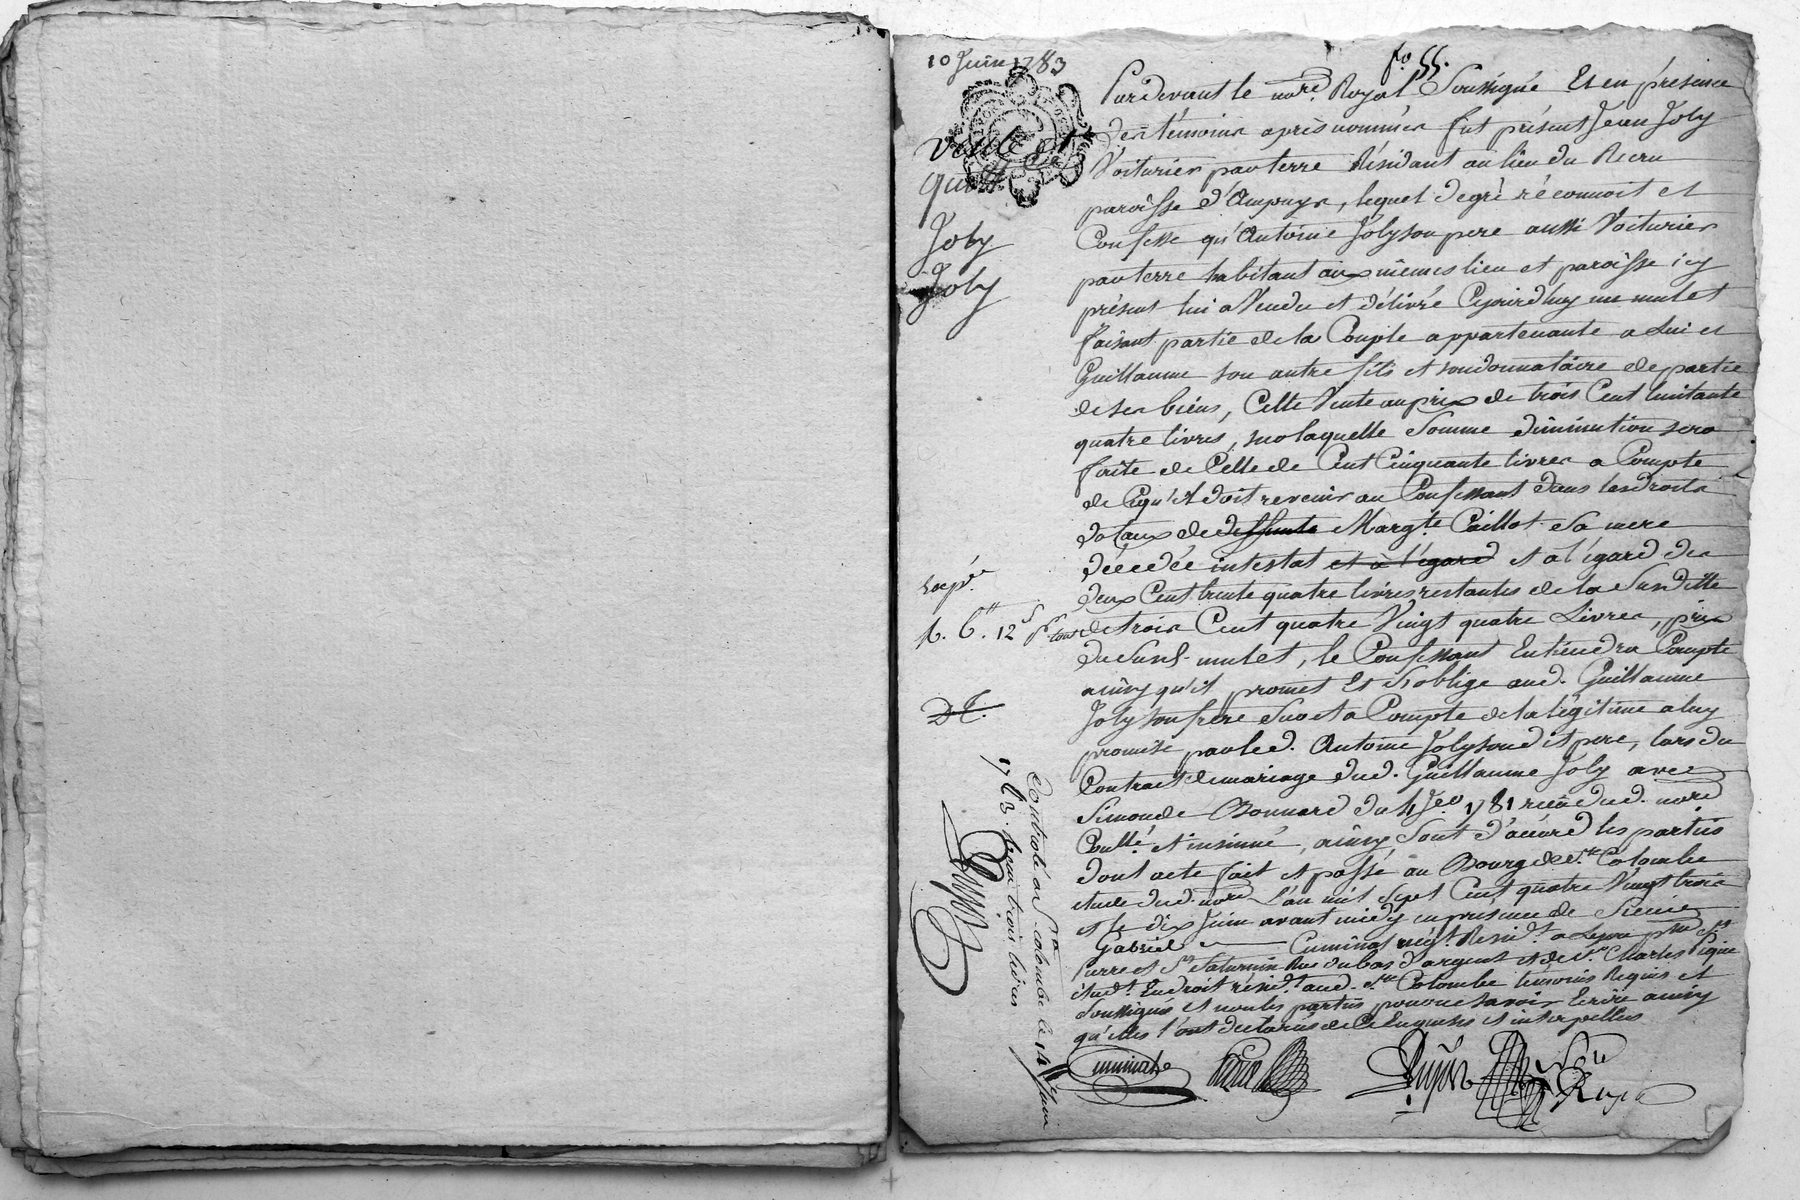 10 Juin 1783
fo. 55.
Vente et
quitt.
Joly
Joly
Pardevant le nore. Royal Soussigné Et en présence
des témoins après nommés fut présent Jean Joly
Voiturier par terre Résidant au lieu du Recru
paroisse d'Ampuys, lequel degré réconnoit et
Confesse qu'Antoine Joly son pere aussi Voiturier
par terre habitant aux mêmes lieu et paroisse icy
présent lui a Vendu et délivré Cejourd'huy un mulet
faisant partie de la Couple appartenante a Lui et
Guillaume son autre fils et son donnataire de partie
de ses biens, Cette Vente au prix de trois Cent huitante
quatre livres, sur laquelle Somme diminution sera
faite de Celle de Cent Cinquante livres a Compte
de Cequ'il doit revenir au Confessant dans les droits
dotaux de deffunte Margte. Caillot Sa mere
décedée intestat et à l'égard et a l'égard des
deux Cent trente quatre livres restantes de la Susditte
de trois Cent quatre Vingt quatre Livres, prix
du Susd. mulet, le Confessant Entiendra Compte
ainsy qu'il promet Et S'oblige aud. Guillaume
Joly son frere Sur et a Compte de la légitime a luy
promise par led. Antoine Joly sond it pere, lors du
Contract de mariage dud. Guillaume Joly avec
Simonde Bonnard du 4 1781 dud. nore
Conllé. et insinué, ainsy Sont d'accord les parties
dont acte fait et passé au Bourg de Ste. Colombe
etude dud. nore L'an mil Sept Cent quatre Vingt trois
et le dix Juin avant midy en presence de Sieurs
Gabriel Cuminat négt. Résidt. a Lyon psse St.
Pierre et St Saturnin Rue du bas d'argent et de Sr. Charles
étudt. En droit résidt. aud. Ste Colombe témoins Requis et
Soussignés et non les parties pour ne savoir Ecrire ainsy
qu'elles l'ont déclarés de Ce Enquises et interpellés
Cuminat
Exp.ée
12 s
Controlé a Ste Colombe le 14 Juin
1783. Reçu trois livres